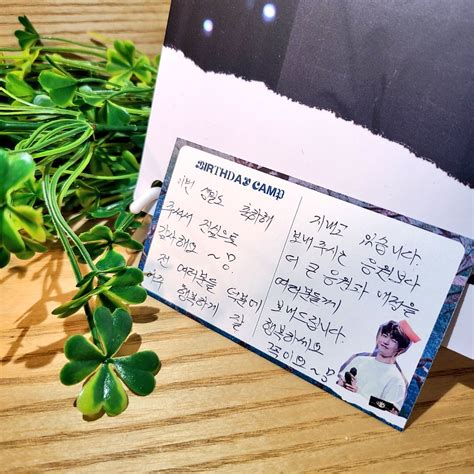 BIRTHDAY CAMP
이번 생일도 축하해
주셔서 진심으로
감사해요 ~
전 여러분들 덕분에
아주 행복하게 잘
지내고 있습니다.
보내주시는 응원보다
더 큰 응원과 애정을
여러분들께
보내드립니다.
행복하세요
꼭이요 ~